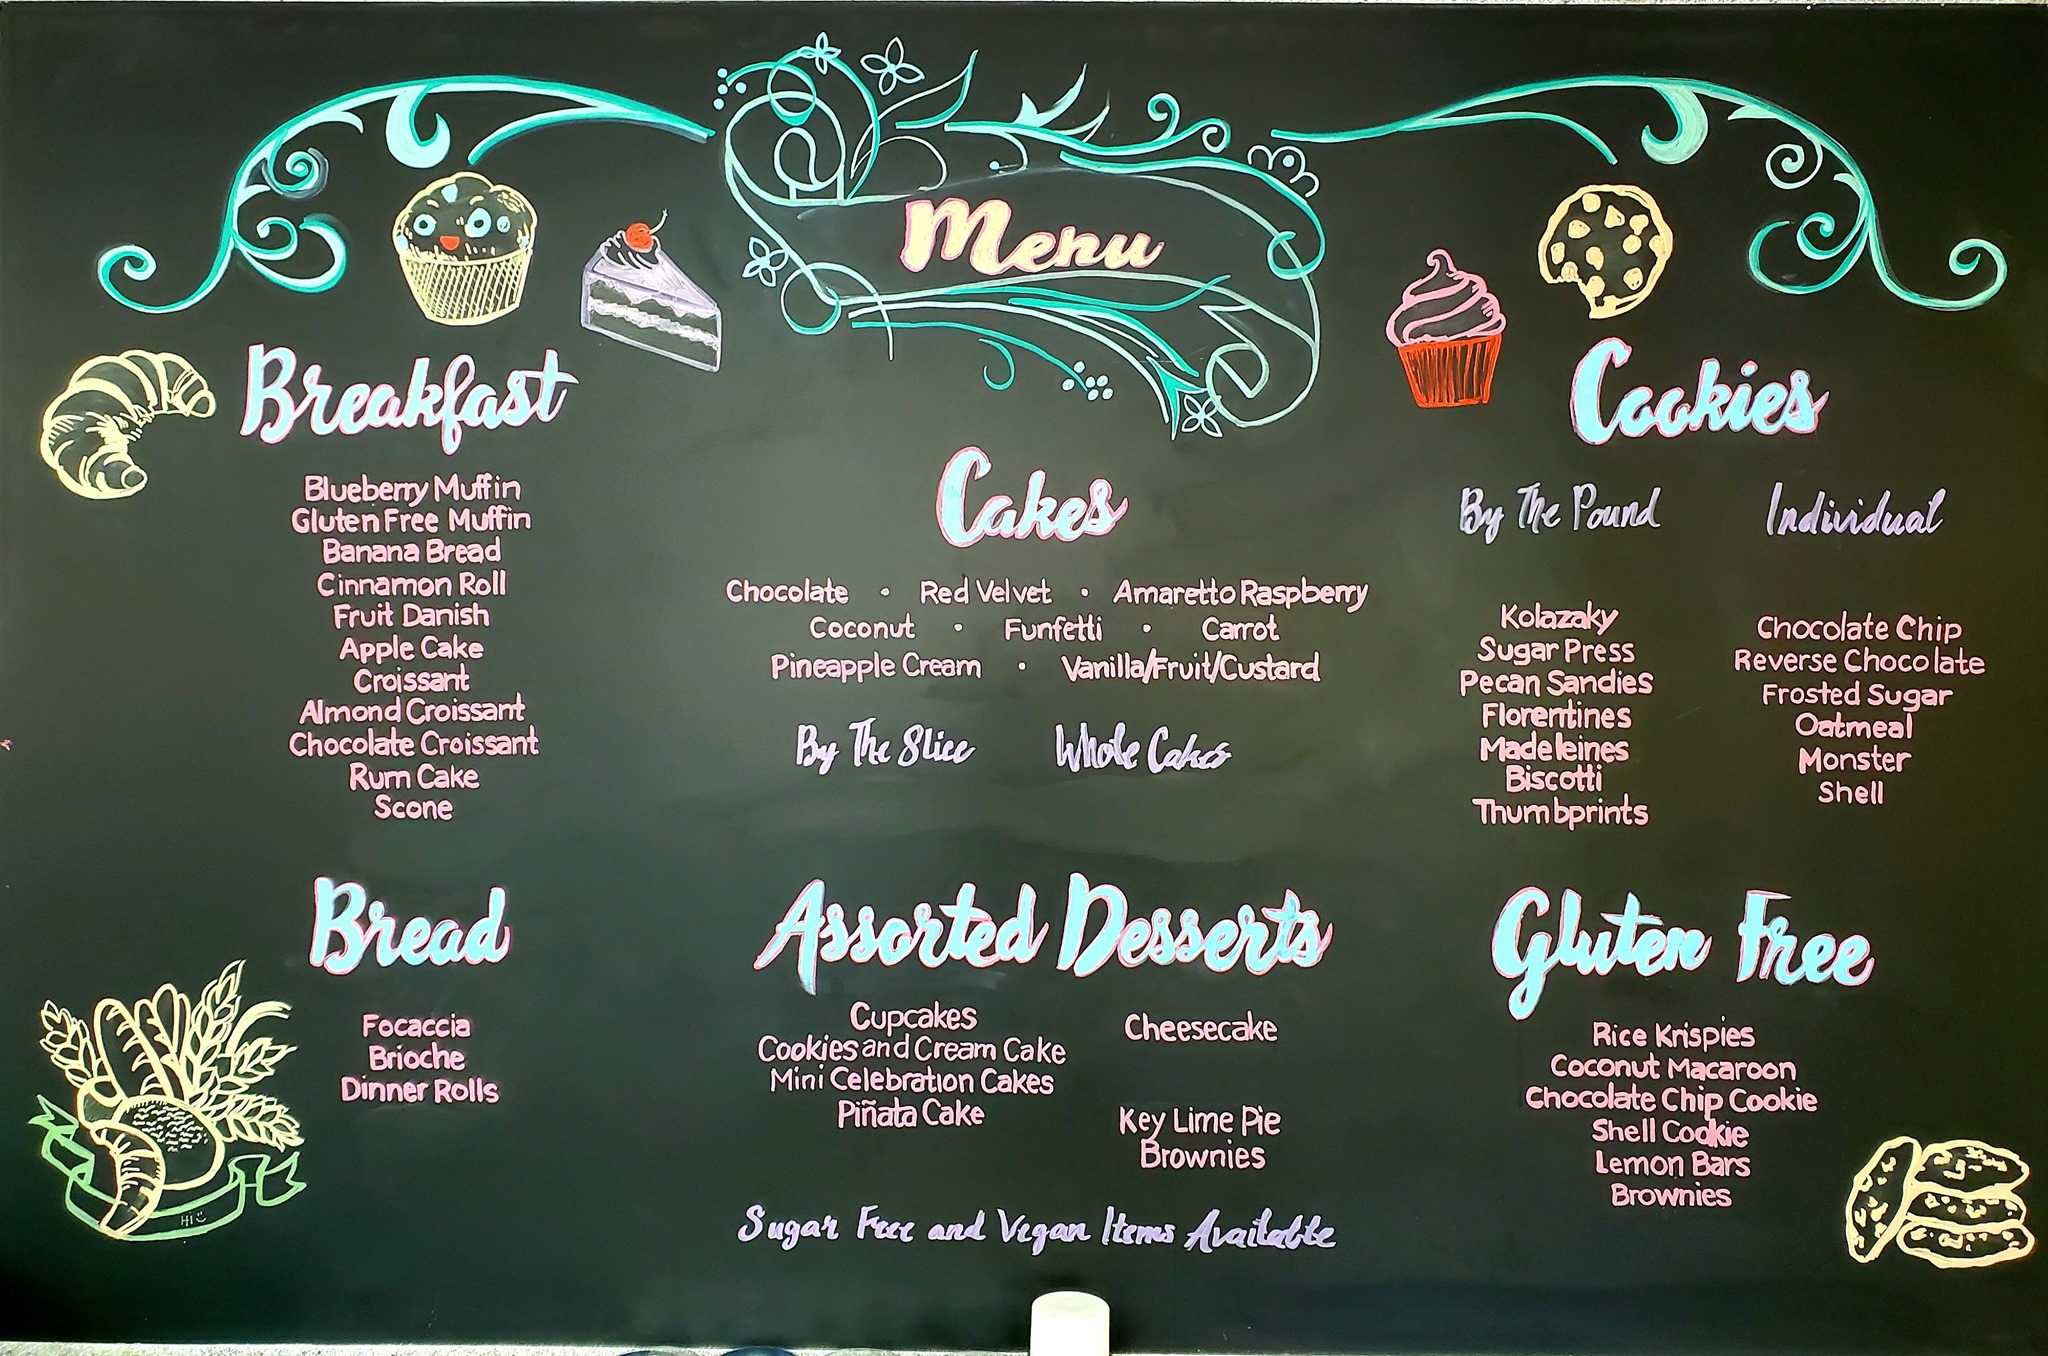 Menu
Breakfast
Blueberry Muffin
Gluten Free Muffin
Banana Bread
Cinnamon Roll
Fruit Danish
Apple Cake
Croissant
Almond Croissant
Chocolate Croissant
Rum Cake
Scone
Bread
Focaccia
Brioche
Dinner Rolls
Hi
Cakes
Chocolate · Red Velvet · Amaretto Raspberry
Coconut · Funfetti · Carrot
Pineapple Cream · Vanilla/Fruit/Custard
By The Slice
Whole Cakes
Assorted Desserts
Cupcakes
Cookies and Cream Cake
Mini Celebration Cakes
Piñata Cake
Cheesecake
Key Lime Pie
Brownies
Sugar Free and Vegan Items Available
Cookies
By The Pound
Kolazaky
Sugar Press
Pecan Sandies
Florentines
Madeleines
Biscotti
Thumbprints
Individual
Chocolate Chip
Reverse Chocolate
Frosted Sugar
Oatmeal
Monster
Shell
Gluten Free
Rice Krispies
Coconut Macaroon
Chocolate Chip Cookie
Shell Cookie
Lemon Bars
Brownies